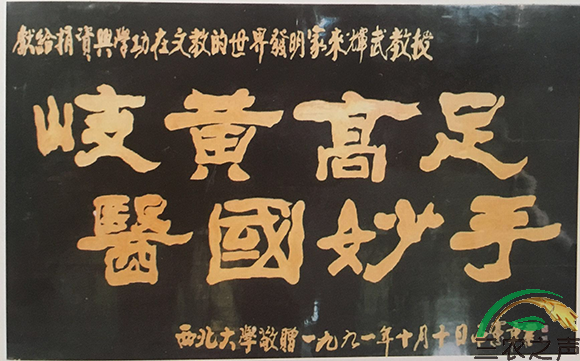 獻給捐資興學功在文教的世界發明家來輝武教授
歧黄髙足
醫國妙手
西北大学敬贈一九九一年十月十日
三农之声